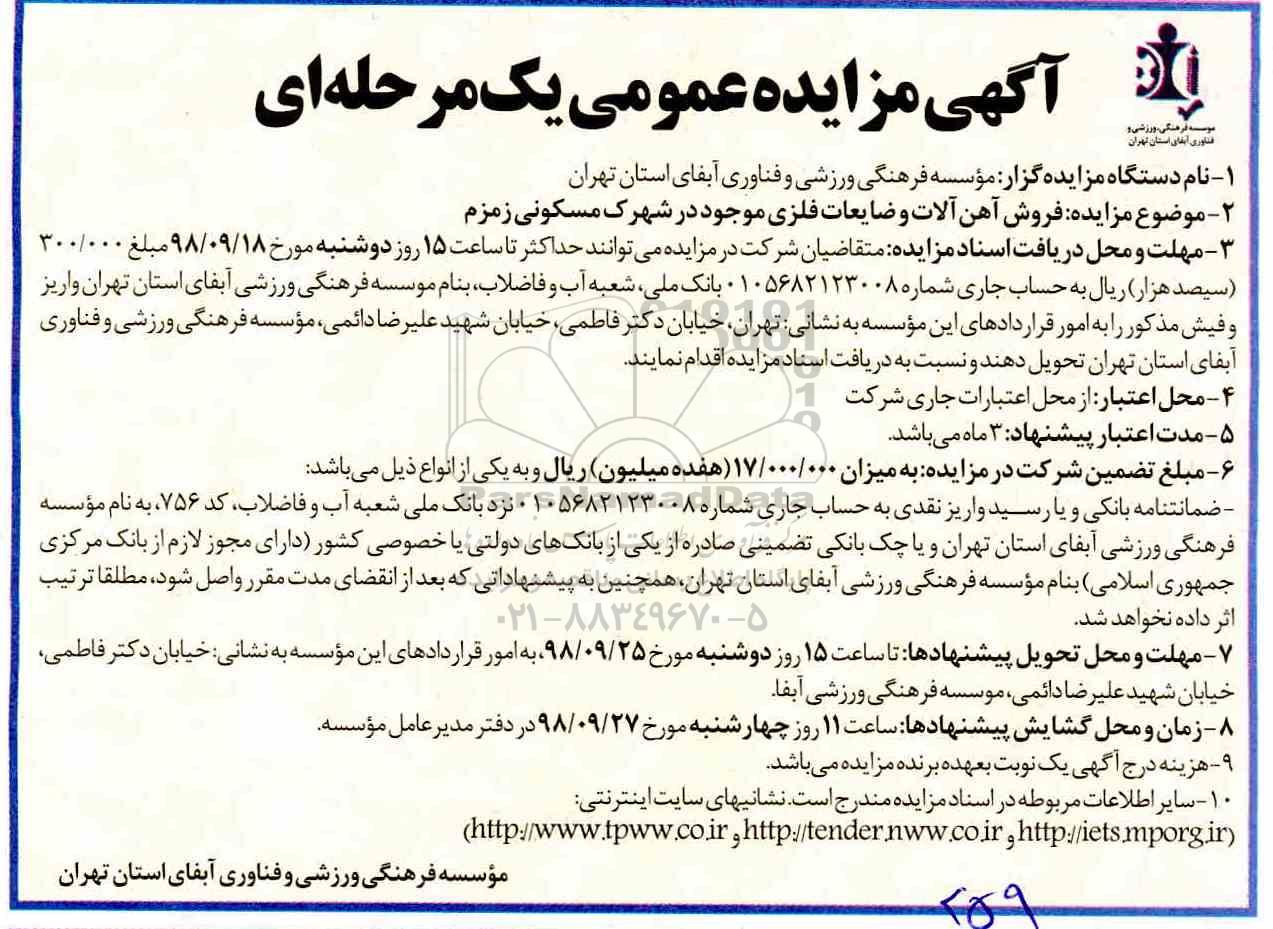 آگهی مزایده عمومی یک مرحله‌ای
موسسه فرهنگی، ورزشی و
فناوری آبفای استان تهران
۱-نام دستگاه مزایده گزار: مؤسسه فرهنگی ورزشی و فناوری آبفای استان تهران
۲-موضوع مزایده: فروش آهن آلات و ضایعات فلزی موجود در شهرک مسکونی زمزم
۳-مهلت و محل دریافت اسناد مزایده: متقاضیان شرکت در مزایده می‌توانند حداکثر تا ساعت ۱۵ روز دوشنبه مورخ ۹۸/۰۹/۱۸ مبلغ ۳۰۰/۰۰۰
(سیصد هزار) ریال به حساب جاری شماره ۰۱۰۵۶۸۲۱۲۳۰۰۸ بانک ملی، شعبه آب و فاضلاب، بنام موسسه فرهنگی ورزشی آبفای استان تهران واریز
و فیش مذکور را به امور قراردادهای این مؤسسه به نشانی: تهران، خیابان دکتر فاطمی، خیابان شهید علیرضا دائمی، مؤسسه فرهنگی ورزشی و فناوری
آبفای استان تهران تحویل دهند و نسبت به دریافت اسناد مزایده اقدام نمایند.
۴-محل اعتبار: از محل اعتبارات جاری شرکت
۵-مدت اعتبار پیشنهاد: ۳ ماه می‌باشد.
۶-مبلغ تضمین شرکت در مزایده: به میزان ۱۷/۰۰۰/۰۰۰ (هفده میلیون) ریال و به یکی از انواع ذیل می‌باشد:
-ضمانتنامه بانکی و یا رسید واریز نقدی به حساب جاری شماره ۰۱۰۵۶۸۲۱۲۳۰۰۸ نزد بانک ملی شعبه آب و فاضلاب، کد ۷۵۶، به نام مؤسسه
فرهنگی ورزشی آبفای استان تهران و یا چک بانکی تضمینی صادره از یکی از بانک‌های دولتی یا خصوصی کشور (دارای مجوز لازم از بانک مرکزی
جمهوری اسلامی) بنام مؤسسه فرهنگی ورزشی آبفای استان تهران، همچنین به پیشنهاداتی که بعد از انقضای مدت مقرر واصل شود، مطلقا ترتیب
اثر داده نخواهد شد.
۷-مهلت و محل تحویل پیشنهادها: تا ساعت ۱۵ روز دوشنبه مورخ ۹۸/۰۹/۲۵، به امور قراردادهای این مؤسسه به نشانی: خیابان دکتر فاطمی،
خیابان شهید علیرضا دائمی، موسسه فرهنگی ورزشی آبفا.
۸-زمان و محل گشایش پیشنهادها: ساعت ۱۱ روز چهارشنبه مورخ ۹۸/۰۹/۲۷ در دفتر مدیرعامل مؤسسه.
۹-هزینه درج آگهی یک نوبت بعهده برنده مزایده می‌باشد.
۱۰-سایر اطلاعات مربوطه در اسناد مزایده مندرج است. نشانیهای سایت اینترنتی:
(http://iets.mporg.ir و http://tender.nww.co.ir و http://www.tpww.co.ir)
مؤسسه فرهنگی ورزشی و فناوری آبفای استان تهران
ParsNamadData
۰۲۱-۸۸۳۴۹۶۷۰-۵